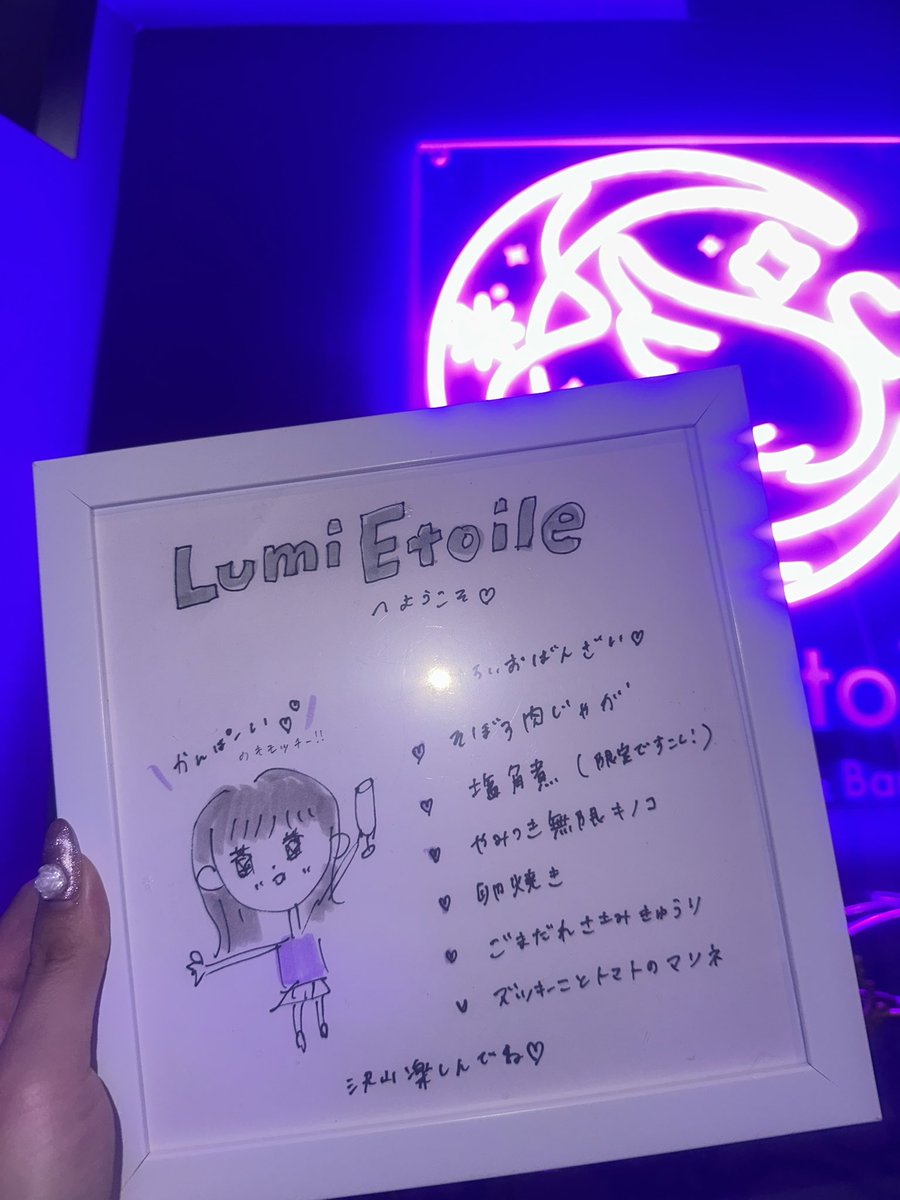 Lumi Etoile
へようこそ♡
おばんざい♡
かんぱーい♡♡
のきモッチー!!
♡ そぼろ肉じゃが
♡ 塩角煮（限定ですこし！）
♥ やみつき無限キノコ
♥ 卵焼き
♥ ごまだれささみきゅうり
♥ ズッキーニとトマトのマリネ
沢山楽しんでね♡
to
Ba